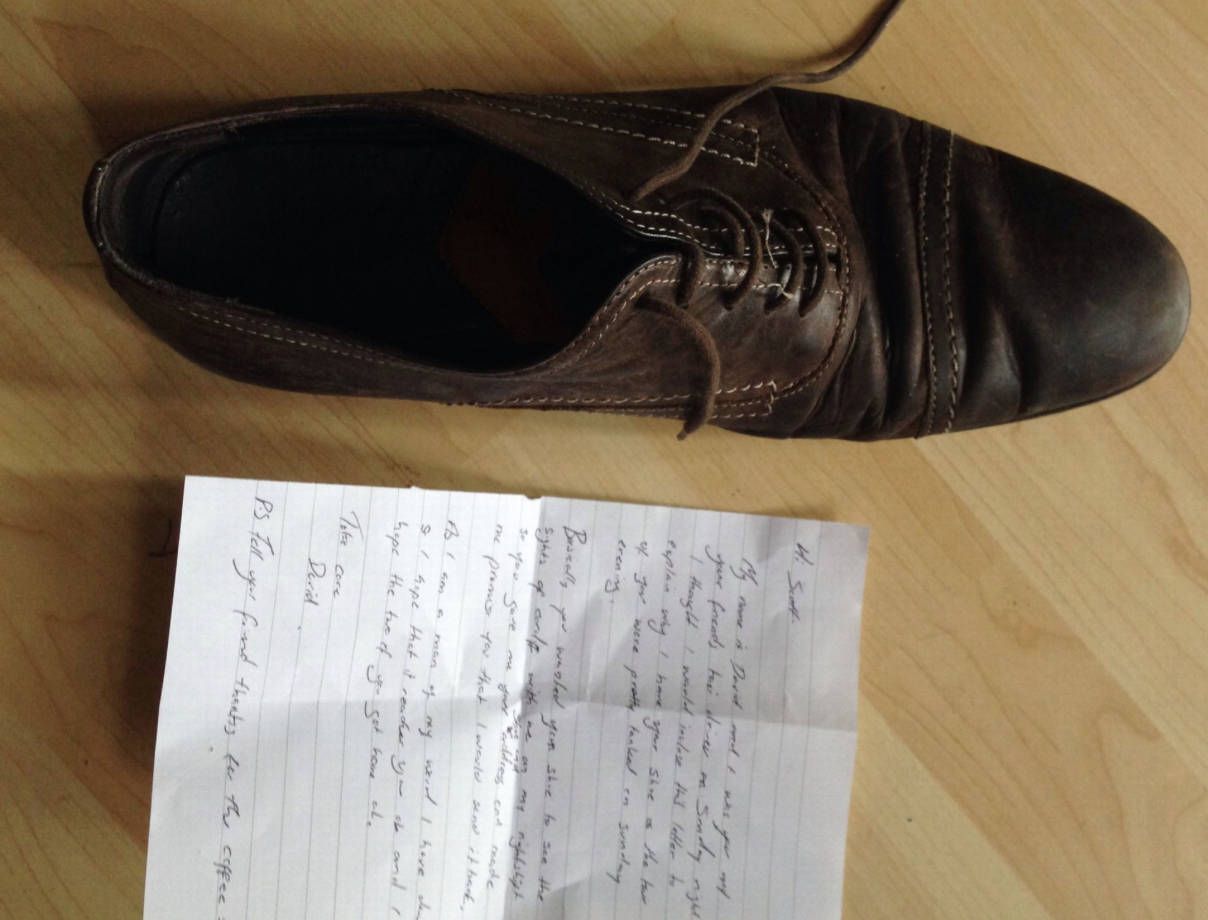 Hi Scott.
My name is David and I was your and
your friends taxi driver on Sunday night
I thought I would inclose this letter to
explain why I have your shoe as the two
of you were pretty tanked on sunday
evening.
Basically you wanted your shoe to see the
sights of cardiff with me on my nightshift
so you gave me your address and made
me promise you that I would send it back.
As I am a man of my word I have
so I hope that it reaches you ok and I
hope the two of you got home ok.
Take care
David.
P.S Tell your friend thanks for the coffee